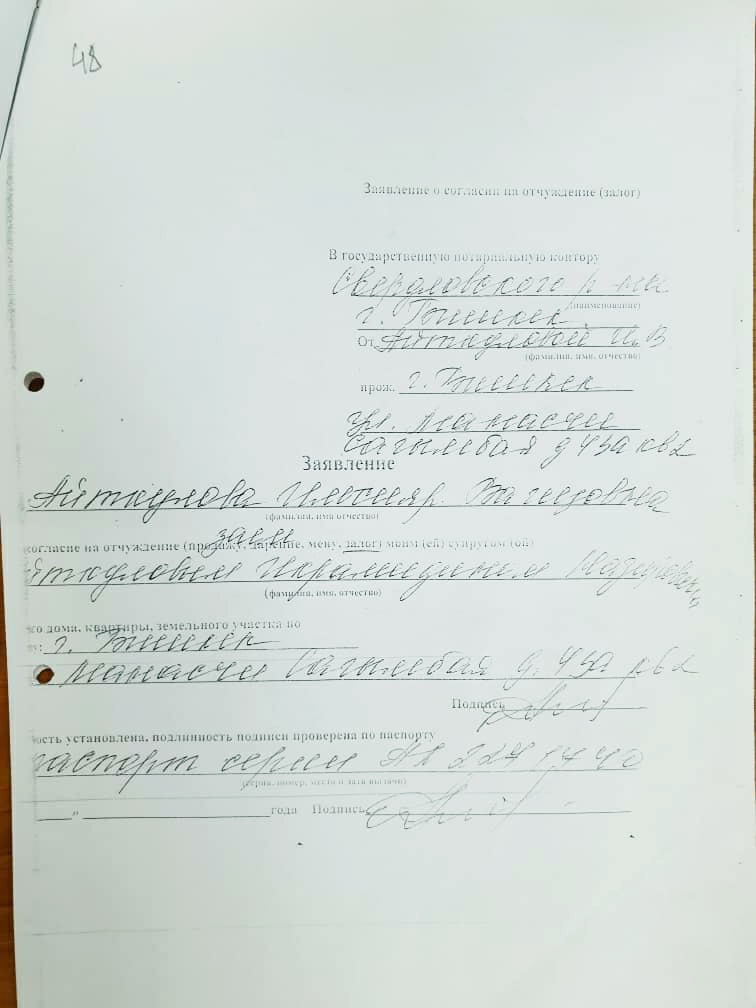 48
Заявление о согласии на отчуждение (залог)
В государственную нотариальную контору
Свердловского р-на
(наименование)
г. Бишкек
От Айткуловой И.В
(фамилия, имя, отчество)
прож. г. Бишкек
ул. Манасчи
Сагымбая д 43а кв 2
Заявление
Айткулова Вагидовна
(фамилия, имя отчество)
заем
согласие на отчуждение (продажу, дарение, мену, залог) моим (ей) супругом (ой)
йткуловым Икрамидином
(фамилия, имя, отчество)
го дома, квартиры, земельного участка по
г. Бишкек
Манасчи Сагымбая д. 43а кв 2
Подпись
ость установлена, подлинность подписи проверена по паспорту
паспорт серии
(серия, номер, место и дата выдачи)
года Подпись